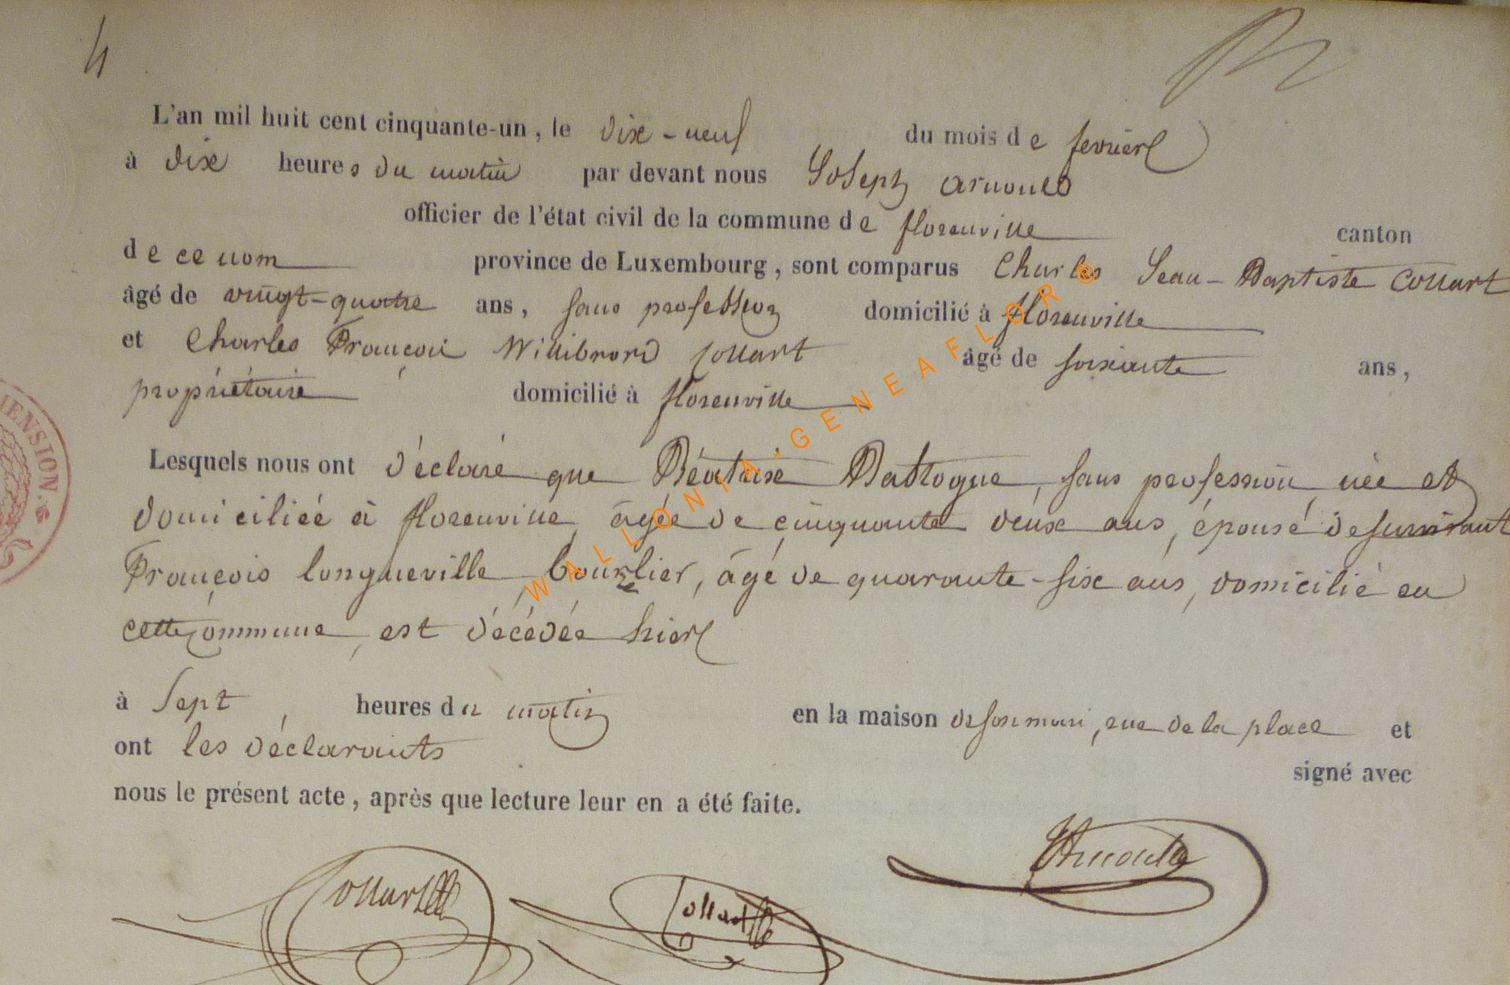 4
L'an mil huit cent cinquante-un, le dix-neuf du mois de fevrier
à dix heures du matin par devant nous Joseph arnould
officier de l'état civil de la commune de florenville canton
de ce nom province de Luxembourg, sont comparus Charles Jean-Baptiste Collart
âgé de vingt-quatre ans, sans profession domicilié à florenville
et Charles François Willibrord Collart âgé de soixante ans,
propriétaire domicilié à florenville
Lesquels nous ont déclaré que Béatrixe Battogne, sans profession, née et
domiciliée à florenville, âgée de cinquante deux ans, épouse de survivant
François longueville Bourlier, âgé de quarante-six ans, domicilié en
cette commune, est décédée hier
à sept heures du matin en la maison de son mari, rue de la place et
ont les déclarants signé avec
nous le présent acte, après que lecture leur en a été faite.
Collart Collart JArnould
WALLONIA.GENEAFLORE
MENSION.S